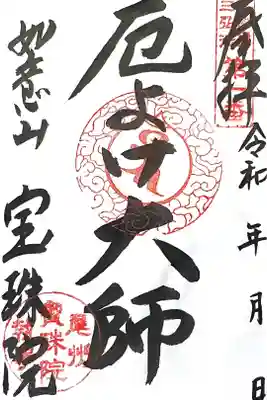 奉拝
令和 年 月 日
厄よけ大師
如意山 宝珠院
尾州
寶珠院